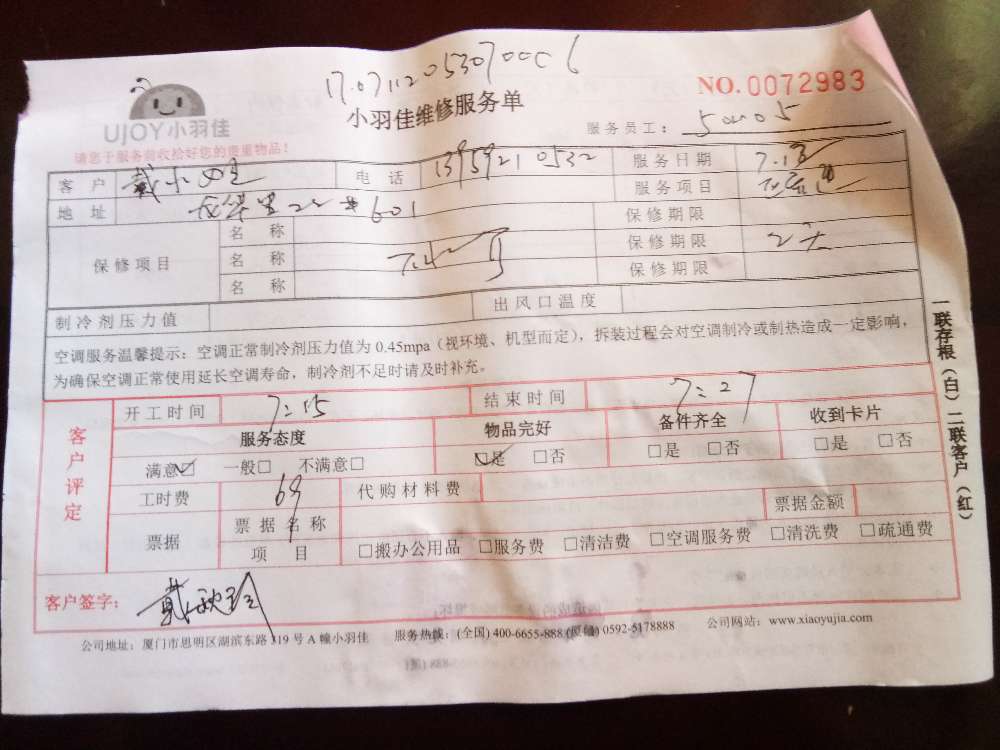 17.07112053070006
NO.0072983
UJOY小羽佳
小羽佳维修服务单
服务员工：
请您于服务前收捡好您的贵重物品！
客 户 戴小姐 电 话 13959210532 服务日期 7.13
地 址 601 服务项目
保修项目 名 称 保修期限
名 称 保修期限
名 称 保修期限
制冷剂压力值 出风口温度
空调服务温馨提示：空调正常制冷剂压力值为 0.45mpa（视环境、机型而定），拆装过程会对空调制冷或制热造成一定影响，
为确保空调正常使用延长空调寿命，制冷剂不足时请及时补充。
客户评定
开工时间 7:15 结束时间 7:27
服务态度 物品完好 备件齐全 收到卡片
满意☑ 一般□ 不满意□ ☑是 □否 □是 □否 □是 □否
工时费 69 代购材料费
票据 票据名称 票据金额
项 目 □搬办公用品 □服务费 □清洁费 □空调服务费 □清洗费 □疏通费
客户签字：
公司地址：厦门市思明区湖滨东路 319 号 A 幢小羽佳 服务热线：(全国) 400-6655-888 (厦门) 0592-5178888 公司网站：www.xiaoyujia.com
一联存根（白）二联客户（红）